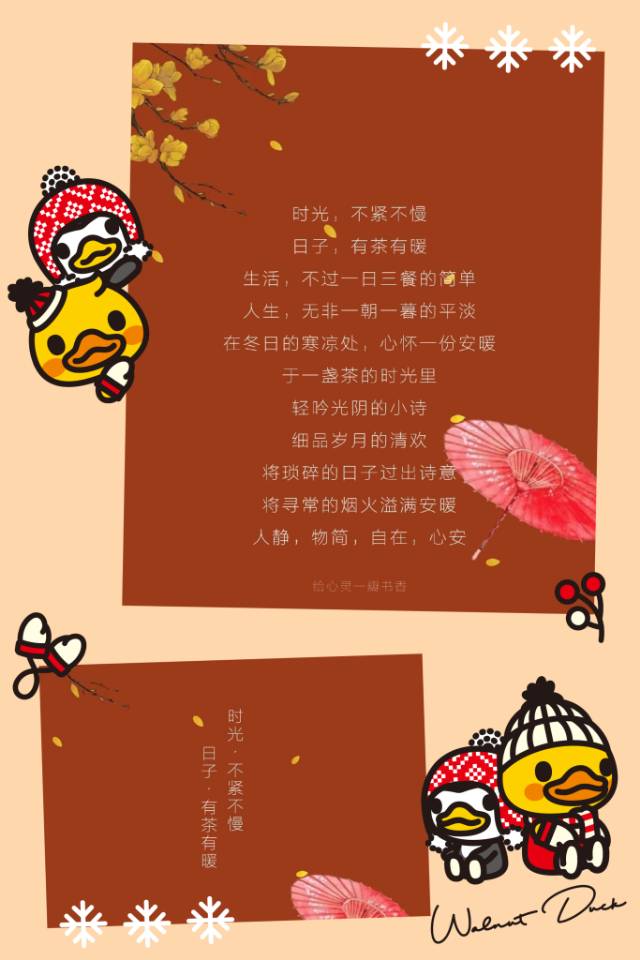 时光，不紧不慢
日子，有茶有暖
生活，不过一日三餐的简单
人生，无非一朝一暮的平淡
在冬日的寒凉处，心怀一份安暖
于一盏茶的时光里
轻吟光阴的小诗
细品岁月的清欢
将琐碎的日子过出诗意
将寻常的烟火溢满安暖
人静，物简，自在，心安
给心灵一瓣书香
时光·不紧不慢
日子·有茶有暖
Walnut Duck